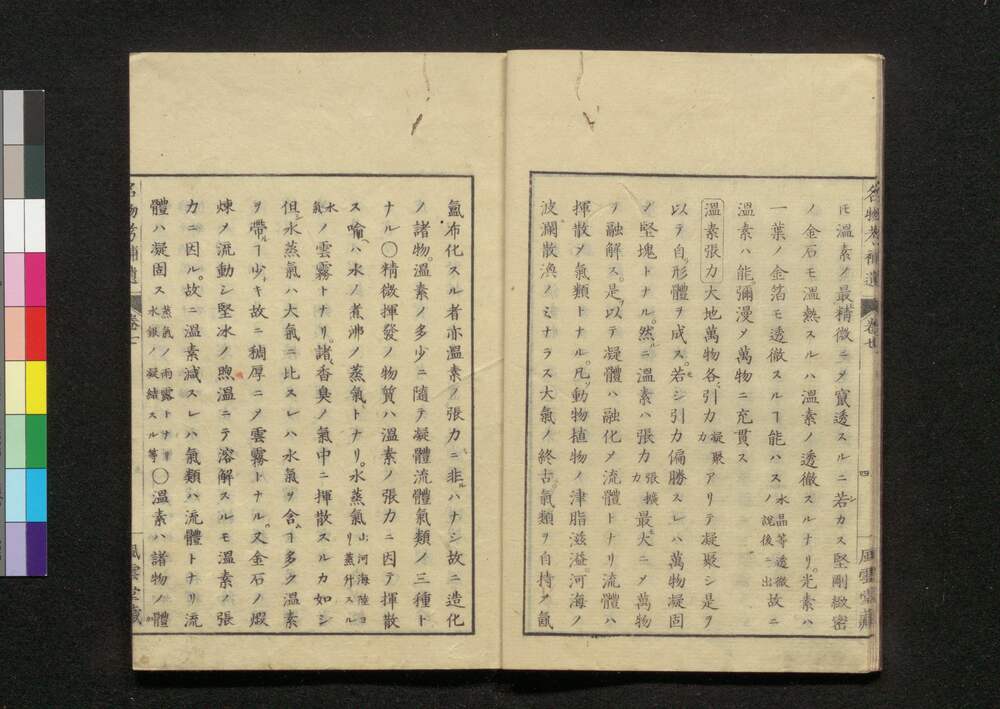 名物考補遺 卷七 四 風雲堂藏
モ溫素ノ最精微ニ乄竄透スルニ若カス堅剛緻密
ノ金石モ溫熱スルハ溫素ノ透徹スルナリ。光素ハ
一葉ノ金箔モ透徹スルヿ能ハス水晶等透徹ノ說後ニ出故ニ
溫素ハ能彌漫乄萬物ニ充貫ス
溫素張力大地萬物各引力凝聚力アリテ凝聚シ是ヲ
以テ自ラ形體ヲ成ス。若シ引力偏勝スレハ萬物凝固
乄堅塊トナル。然ルニ溫素ハ張力張擴力最大ニ乄萬物
ヲ融解ス。是ヲ以テ凝體ハ融化乄流體トナリ流體ハ
揮散乄氣類トナル。凡ソ動物植物ノ津脂滋溢。河海ノ
波瀾散渙ノミナラス大氣ノ終古氣類ヲ自持乄氤
氳布化スル者亦溫素ノ張力ニ非ルハナシ故ニ造化
ノ諸物。溫素ノ多少ニ隨テ凝體流體氣類ノ三種ト
ナル〇精微揮發ノ物質ハ溫素ノ張力ニ因テ揮散
ス喩ヘハ水ノ煮沸ノ蒸氣トナリ。水蒸氣山河海陸ヨリ蒸升スル
水氣ノ雲霧トナリ。諸香臭ノ氣中ニ揮散スルカ如シ
但シ水蒸氣ハ大氣ニ比スレハ水氣ヲ含ムヿ多ク溫素
ヲ帶ルヿ少キ故ニ稠厚ニ乄雲霧トナル。又金石ノ煅
煉乄流動シ堅冰ノ煦溫ニテ溶解スルモ溫素ノ張
力ニ因ル。故ニ溫素減スレハ氣類ハ流體トナリ流
體ハ凝固ス蒸氣ノ雨露トナリ水銀ノ凝結スル等〇溫素ハ諸物ノ體
名物考補遺 卷七 風雲堂藏